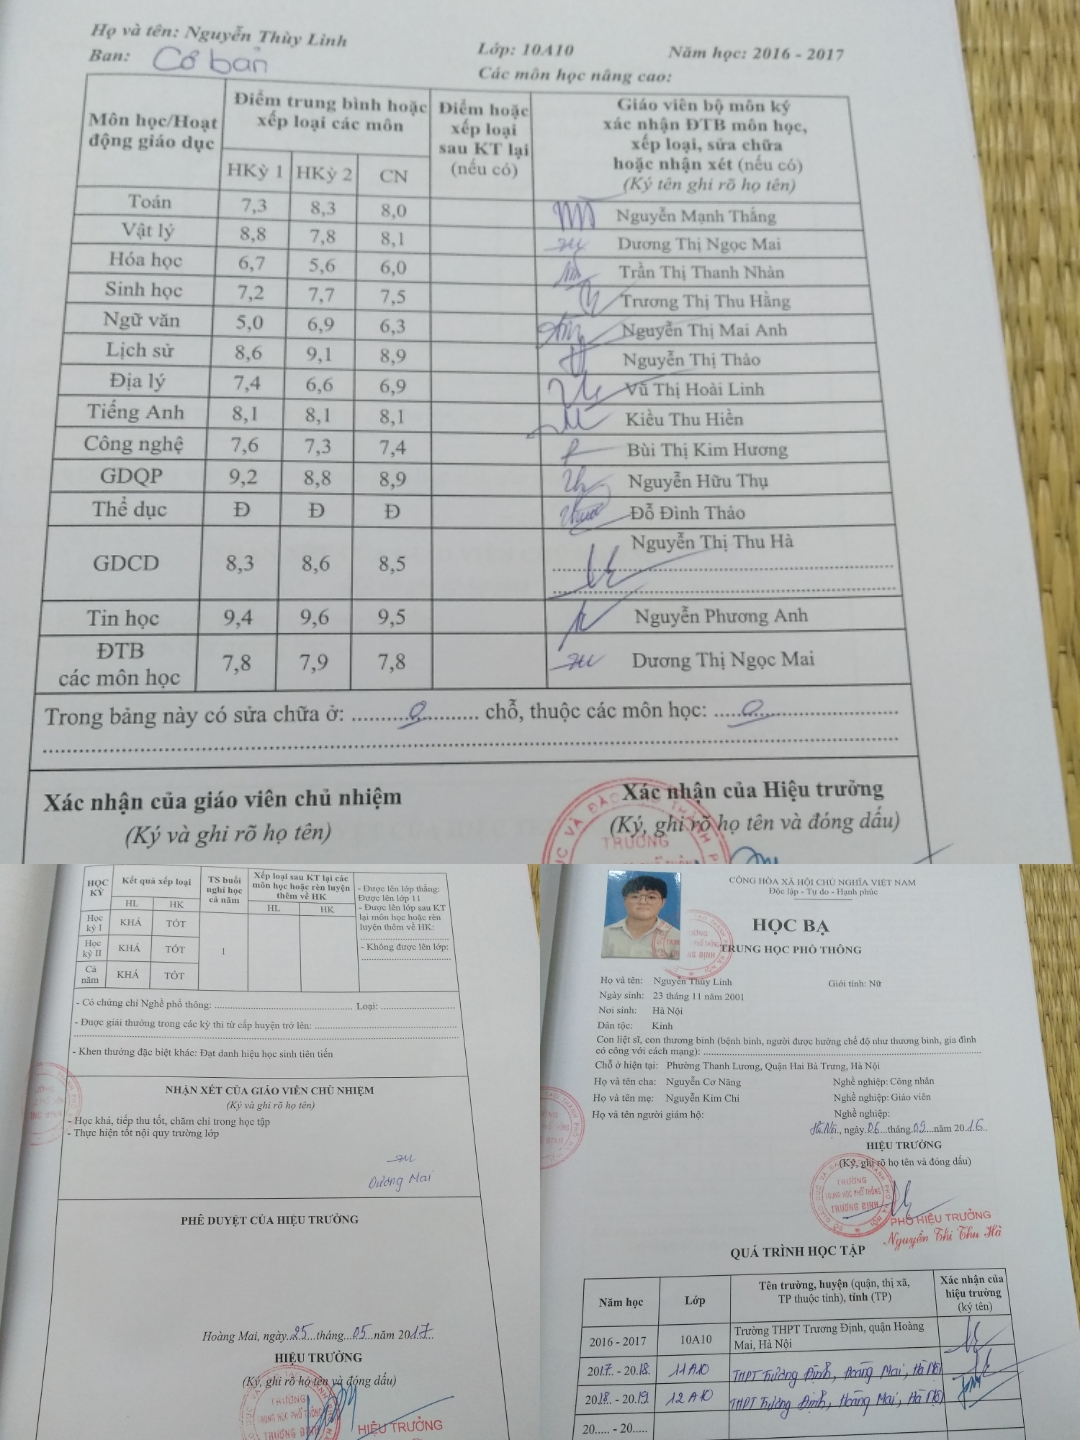 Họ và tên: Nguyễn Thùy Linh Lớp: 10A10 Năm học: 2016 - 2017
Ban: Cơ bản Các môn học nâng cao:
Môn học/Hoạt động giáo dục | Điểm trung bình hoặc xếp loại các môn | Điểm hoặc xếp loại sau KT lại (nếu có) | Giáo viên bộ môn ký xác nhận ĐTB môn học, xếp loại, sửa chữa hoặc nhận xét (nếu có) (Ký tên ghi rõ họ tên)
HKỳ 1 HKỳ 2 CN
Toán 7,3 8,3 8,0 Nguyễn Mạnh Thắng
Vật lý 8,8 7,8 8,1 Dương Thị Ngọc Mai
Hóa học 6,7 5,6 6,0 Trần Thị Thanh Nhàn
Sinh học 7,2 7,7 7,5 Trương Thị Thu Hằng
Ngữ văn 5,0 6,9 6,3 Nguyễn Thị Mai Anh
Lịch sử 8,6 9,1 8,9 Nguyễn Thị Thảo
Địa lý 7,4 6,6 6,9 Vũ Thị Hoài Linh
Tiếng Anh 8,1 8,1 8,1 Kiều Thu Hiền
Công nghệ 7,6 7,3 7,4 Bùi Thị Kim Hương
GDQP 9,2 8,8 8,9 Nguyễn Hữu Thụ
Thể dục Đ Đ Đ Đỗ Đình Thảo
GDCD 8,3 8,6 8,5 Nguyễn Thị Thu Hà
Tin học 9,4 9,6 9,5 Nguyễn Phương Anh
ĐTB các môn học 7,8 7,9 7,8 Dương Thị Ngọc Mai
Trong bảng này có sửa chữa ở: ....0.... chỗ, thuộc các môn học: ....0....
Xác nhận của giáo viên chủ nhiệm
(Ký và ghi rõ họ tên)
Xác nhận của Hiệu trưởng
(Ký, ghi rõ họ tên và đóng dấu)
TRƯỜNG
HỌC KỲ | Kết quả xếp loại | TS buổi nghỉ học cả năm | Xếp loại sau KT lại các môn học hoặc rèn luyện thêm về HK
HL HK HL HK
Học kỳ I KHÁ TỐT
Học kỳ II KHÁ TỐT 1
Cả năm KHÁ TỐT
- Được lên lớp thẳng:
Được lên lớp 11
- Được lên lớp sau KT
lại môn học hoặc rèn
luyện thêm về HK:
- Không được lên lớp:
- Có chứng chỉ Nghề phổ thông: Loại:
- Được giải thưởng trong các kỳ thi từ cấp huyện trở lên:
- Khen thưởng đặc biệt khác: Đạt danh hiệu học sinh tiên tiến
NHẬN XÉT CỦA GIÁO VIÊN CHỦ NHIỆM
(Ký và ghi rõ họ tên)
- Học khá, tiếp thu tốt, chăm chỉ trong học tập
- Thực hiện tốt nội quy trường lớp
Dương Mai
PHÊ DUYỆT CỦA HIỆU TRƯỞNG
Hoàng Mai, ngày 25 tháng 05 năm 2017
HIỆU TRƯỞNG
(Ký, ghi rõ họ tên và đóng dấu)
TRƯỜNG
TRUNG HỌC PHỔ THÔNG
TRƯƠNG ĐỊNH
HIỆU TRƯỞNG
CỘNG HÒA XÃ HỘI CHỦ NGHĨA VIỆT NAM
Độc lập - Tự do - Hạnh phúc
HỌC BẠ
TRUNG HỌC PHỔ THÔNG
Họ và tên: Nguyễn Thùy Linh Giới tính: Nữ
Ngày sinh: 23 tháng 11 năm 2001
Nơi sinh: Hà Nội
Dân tộc: Kinh
Con liệt sĩ, con thương binh (bệnh binh, người được hưởng chế độ như thương binh, gia đình
có công với cách mạng):
Chỗ ở hiện tại: Phường Thanh Lương, Quận Hai Bà Trưng, Hà Nội
Họ và tên cha: Nguyễn Cơ Năng Nghề nghiệp: Công nhân
Họ và tên mẹ: Nguyễn Kim Chi Nghề nghiệp: Giáo viên
Họ và tên người giám hộ: Nghề nghiệp:
Hà Nội, ngày 06 tháng 09 năm 2016
HIỆU TRƯỞNG
(Ký, ghi rõ họ tên và đóng dấu)
TRƯỜNG
TRUNG HỌC PHỔ THÔNG
TRƯƠNG ĐỊNH
PHÓ HIỆU TRƯỞNG
Nguyễn Thị Thu Hà
QUÁ TRÌNH HỌC TẬP
Năm học | Lớp | Tên trường, huyện (quận, thị xã, TP thuộc tỉnh), tỉnh (TP) | Xác nhận của hiệu trưởng (ký tên)
2016 - 2017 10A10 Trường THPT Trương Định, quận Hoàng Mai, Hà Nội
2017 - 2018 11A10 THPT Trương Định, Hoàng Mai, Hà Nội
2018 - 2019 12A10 THPT Trương Định, Hoàng Mai, Hà Nội
20..... - 20.....